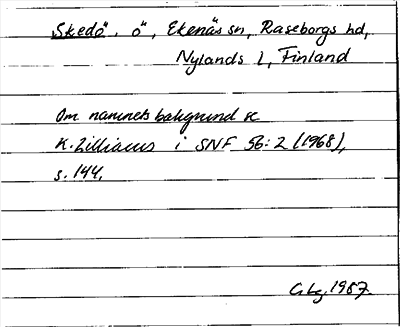 Skedö, ö, Ekenäs sn, Raseborgs hd,
Nylands l, Finland
Om namnets bakgrund se
K. Zilliacus i SNF 56:2 (1968),
s. 144.
1987.